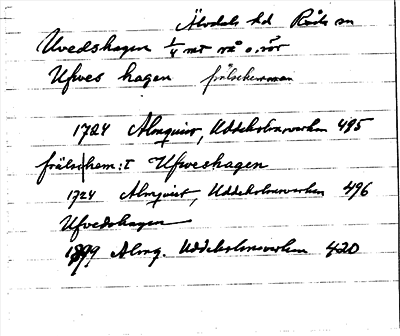 Älvdals hd Råda sn
Uvedshagen 1/4 mt rå o. rör
Ufves hagen frälsehemman
1724 Almquist, Uddeholmsverken 495
frälsehem: I Ufweshagen
1724 Almquist, Uddeholmsverken 496
Ufvedshagen
1899 Almq. Uddeholmsverken 420